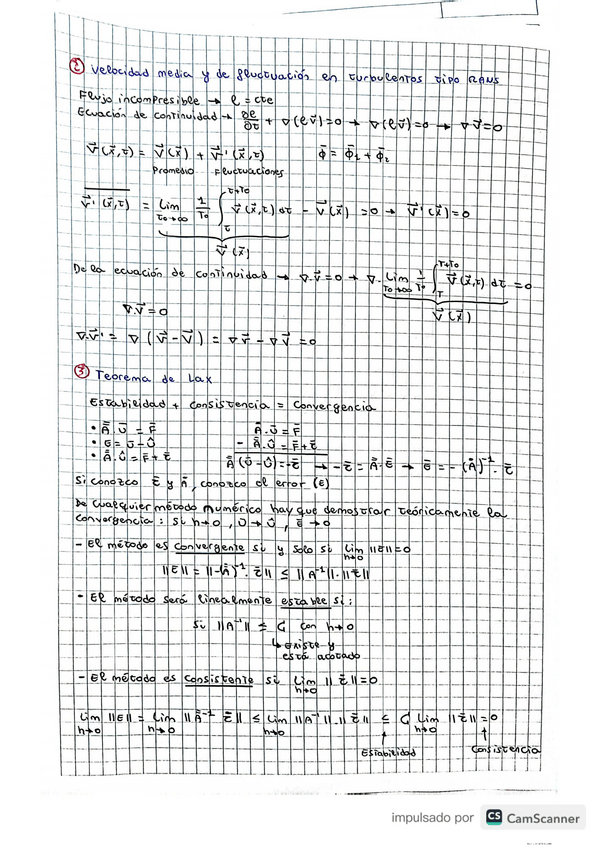 ② Velocidad media y de fluctuación en turbulentos tipo RANS
Flujo incompresible → ρ = cte
Ecuación de continuidad → ∂ρ/∂τ + ∇(ρv⃗)=0 → ∇(ρv⃗)=0 → ∇v⃗=0
v⃗(x⃗,τ) = V⃗(x⃗) + v⃗'(x⃗,τ)   Φ̄ = Φ̄₁ + Φ̄₂
Promedio Fluctuaciones
v⃗'(x⃗,τ) = lim τ₀→∞ 1/τ₀ ∫ τ τ+τ₀ v⃗(x⃗,τ) dτ − V⃗(x⃗) = 0 → v⃗'(x⃗) = 0
V⃗(x⃗)
De la ecuación de continuidad → ∇.v⃗=0 → ∇. lim τ₀→∞ 1/τ₀ ∫ τ τ+τ₀ v⃗(x⃗,τ) dτ = 0
∇.V⃗=0   V⃗(x⃗)
∇.v⃗' = ∇(v⃗−V⃗) = ∇v⃗ − ∇V⃗ = 0
③ Teorema de Lax
Estabilidad + consistencia = Convergencia
• Ā.Ū = F̄   Ā.Ū = F̄
• Ē = Ū − Û   − Ā.Û = F̄ + τ̄
• Ā.Û = F̄ + τ̄   Ā(Ū−Û) = −τ̄ → −τ̄ = Ā.Ē → Ē = −(Ā)⁻¹.τ̄
Si conozco τ̄ y Ā, conozco el error (E)
De cualquier método numérico hay que demostrar teóricamente la
convergencia: Si h→0, Û→Ū, Ē→0
- El método es convergente si y solo si lim h→0 ||E||=0
||E|| = ||−(Ā)⁻¹.τ̄|| ≤ ||A⁻¹||.||τ̄||
- El método será linealmente estable si:
Si ||A⁻¹|| ≤ C con h→0
↳ existe y
está acotado
- El método es consistente si lim h→0 ||τ̄||=0
lim h→0 ||E|| = lim h→0 ||Ā⁻¹ τ̄|| ≤ lim h→0 ||A⁻¹||.||τ̄|| ≤ C lim h→0 ||τ̄|| = 0
Estabilidad   Consistencia
impulsado por CS CamScanner